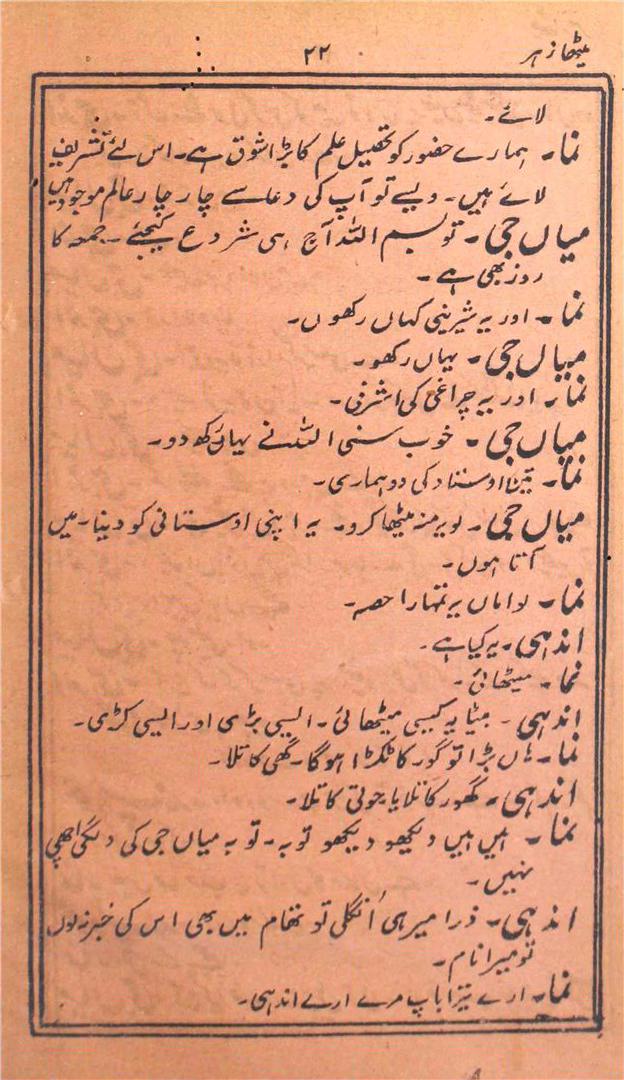 میٹھا زہر
۲۲
لائے۔
نما۔ ہمارے حضور کو تحصیل علم کا بڑا شوق ہے۔ اس لئے تشریف
لائے ہیں۔ ویسے تو آپ کی دعا سے چار چار عالم موجود ہیں
میاں جی۔ تو بسم اللہ آج ہی شروع کیجئے۔ جمعہ کا
روز بھی ہے۔
نما۔ اور یہ شیرینی کہاں رکھوں۔
میاں جی۔ یہاں رکھو۔
نما۔ اور یہ چراغی کی اشرفی۔
میاں جی۔ خوب سنی اللہ نے یہاں رکھ دو۔
نما۔ اوستاد کی دو ہماری۔
میاں جی۔ لو یہ منہ میٹھا کرو۔ یہ اپنی اوستانی کو دینا۔ میں
آتا ہوں۔
نما۔ لو اماں یہ تمہارا حصہ۔
اندہی۔ یہ کیا ہے۔
نما۔ میٹھائی۔
اندہی۔ بیٹا یہ کیسی میٹھائی۔ ایسی بڑی اور ایسی کڑی۔
نما۔ ہاں بڑا تو گور کا ٹکڑا ہوگا۔ گھی کا تلا۔
اندہی۔ گھور کا تلا یا جوتی کا تلا۔
نما۔ ہیں ہیں دیکھو دیکھو توبہ۔ توبہ میاں جی کی دلگی اچھی
نہیں۔
اندہی۔ ذرا میری اُنگلی تو تھام میں بھی اس کی خبر نہ لوں
تو میرا نام۔
نما۔ ارے تیرا باپ مرے ارے اندہی۔